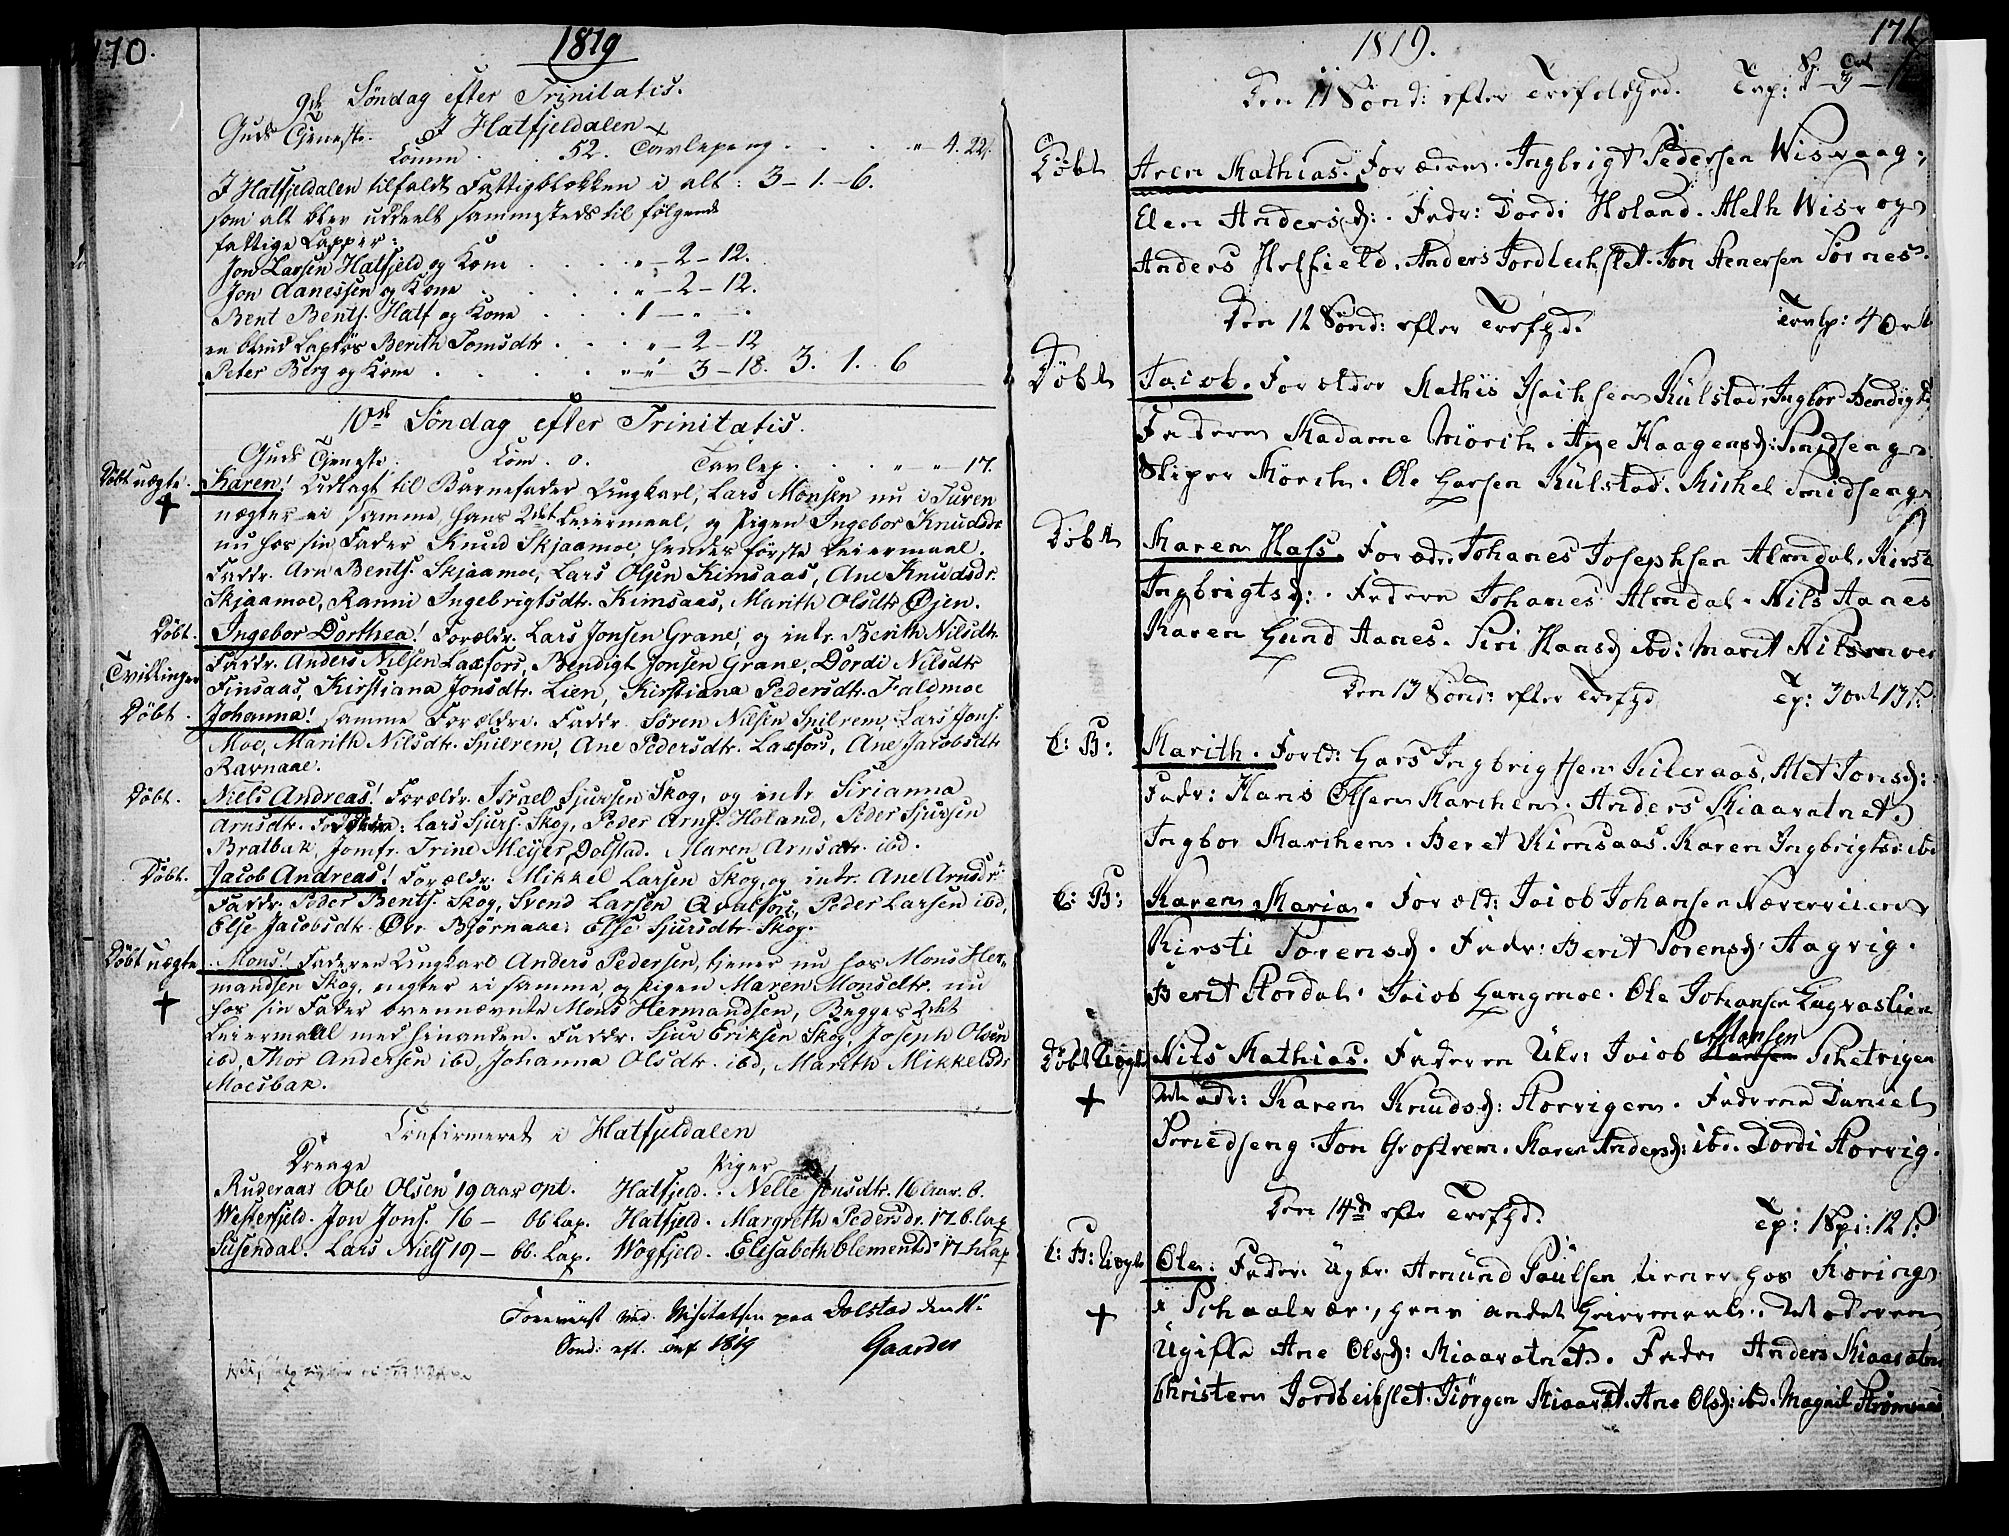 170.
1819
9de Søndag efter Trinitatis.
Guds Tjeneste. I Hatfjeldalen
Comm . . 52. Tavlepeng . . . . " 4. 22.
I Hatfjeldalen tilfaldt Fattigblokken i alt: 3-1.-6.
som alt blev uddeelt sammesteds til følgende
fattige Lapper:
Jon Larsen Hatfjeld og Kone . . . . " - 2 - 12.
Jon Aanessen og Kone . . . . " - 2 - 12.
Bent Bents. Hatf og Kone . . . 1 - . - .
en blind Lapkös Berith Tomsdtr . . . " - 2 - 12
Peter Berg og Kone . . . . . " " 3 - 18. 3. 1. 6
10de Søndag efter Trinitatis.
Guds Tjeneste. Com . 0. Tavlep . . . " " 17.
Döbt uægte. Karen! Udlagt til Barnefader Ungkarl, Lars Monsen nu i Turen
+ nægter ei samme, hans 2det Leiermaal, og Pigen Ingebor Knudsdr
nu hos sin Fader Knud Skjaamoe, hendes første Leiermaal.
Faddr. Arn Bents. Skjaamoe, Lars Olsen Kimsaas, Ane Knudsdr.
Skjaamoe, Ranni Ingebrigtsdtr. Kimsaas, Marith Olsdtr Øjen.
Döbt. Ingebor Dorthea! Forældr. Lars Jonsen Grane, og intr. Berith Nilsdtr.
Tvillinger Faddr. Anders Nilsen Laxfors, Bendigt Jonsen Grane, Dordi Nilsdtr
Finsaas, Kirstiana Jonsdtr. Lien, Kirstiana Pedersdtr. Faldmoe
Döbt. Johanna! samme Forældre. Faddr. Søren Nilsen Spilrem, Lars Jons.
Moe, Marith Nilsdtr. Spilrem, Ane Pedersdtr. Laxfors, Ane Jacobsdtr
Ravnaae.
Döbt. Niels Andreas! Forældr. Israel Sjursen Skog, og intr Sirianna
Arnsdtr. Faddere: Lars Sjurs. Skog, Peder Arns. Holand, Peder Sjursen
Bratbak, Jomfr. Trine Meyer, Dolstad. Maren Arnsdtr. ibd.
Döbt. Jacob Andreas! Forældr. Mikkel Larsen Skog, og intr. Ane Arnsdr.
Faddr. Peder Bents. Skog, Svend Larsen Qvalfors, Peder Larsen ibd,
Else Jacobsdtr. Övr Björnaae. Else Sjursdtr. Skog.
Döbt uægte Mons! Faderen Ungkarl Anders Pedersen, tjener nu hos Mons Her-
+ mandsen Skog, negter ei samme, og Pigen Maren Monsdtr. nu
hos sin Fader ovennævnte Mons Hermandsen, Begges 2det
Leiermaal med hinanden. Faddr. Sjur Eriksen Skog, Joseph Olsen
ibd, Thor Andersen ibd, Johanna Olsdtr. ibd, Marith Mikkelsdr
Moesbak.
Confirmeret i Hatfjeldalen
Drenge Piger
Ruderaas Ole Olsen 19 Aar opt. Hatfjeld. Nelle Jonsdtr. 16 Aar. b.
Westerfjeld. Jon Jons. 16 - bb Lap. Hatfjeld. Margreth Pedersdr. 17. b. Lap
Susendal. Lars Niels 19 - bb. Lap. Wogfjeld. Elisabeth Clementsd. 17. b Lap
Foreviist ved Visitatsen paa Dolstad den 11te
Sønd: eft. 1819 Gaarder
171
1819.
Den 11 Sønd: efter Trefoldhed. Tavp:
Döbt Aren Mathias. Foræ­ldren. Ingbrigt Pedersen Wisvaag,
Elen Andersd:. Fadr: Dordi Holand. Aleth Wisvog
Anders Helfjeld. Anders Jordbekslet. Jon Stenersen Sörnes.
Den 12 Sønd: efter Trefhd. Tavlp: 4 Ort
Döbt Jacob. Forældre Mathis Isachsen Külstad, Ingbor Bendigtsd
Fadern Madame Mörch. Ane Haagensd: Smedseng.
Skiper Mörch. Ole Larsen Külstad. Michel Smidseng.
Döbt Maren Hass. Foræd. Johanes Josephsen Almdal. Kirst
Ingbrigtsd:. Fadern Johanes Almdal. Nils Aanes
Karen Lund Aanes. Siri Hansd ibd: Marit
Den 13 Sønd: efter Trefhd Tp: 3 ort 13 s.
C: B: Marith. Forld: Lars Ingbrigtsen Kileraas, Alet Jonsd:
Fadr: Hans Olsen Marchen. Anders Kiaaratnet.
Ingbor Marchen. Beret Kimsaas. Karen Ingbrigtsd: ibd
C: B: Karen Maria. Foræld: Jacob Johansen
Kirsti Sörensd. Fadr: Berit Sörensd: Aagvig.
Berit Stordal. Jacob Langmoe. Ole Johansen
Döbt Uægt Nils Mathias. Faderen Ukr: Jacob Hansen
+ Modr: Karen Knudsd: Storvigen. Faderne Daniel
Smedseng. Jon Groftrem. Maren Andersd: ibd. Dordi Storvig.
Den 14de efter Trefhd. Tp: 1 Spi: 12 s.
C: B: Uægt Ole: Fader: Ugkr. Amund Paülsen tiener hos
+ i Schaalvær, hans andet Leiermaal. Moderen
Ugifte Ane Olsd: Kiaaratnet. Fadr Anders Kiaaratn
Christen Jordbekslet. Jörgen Kiaarat. Ane Olsd: ibd. Magnil